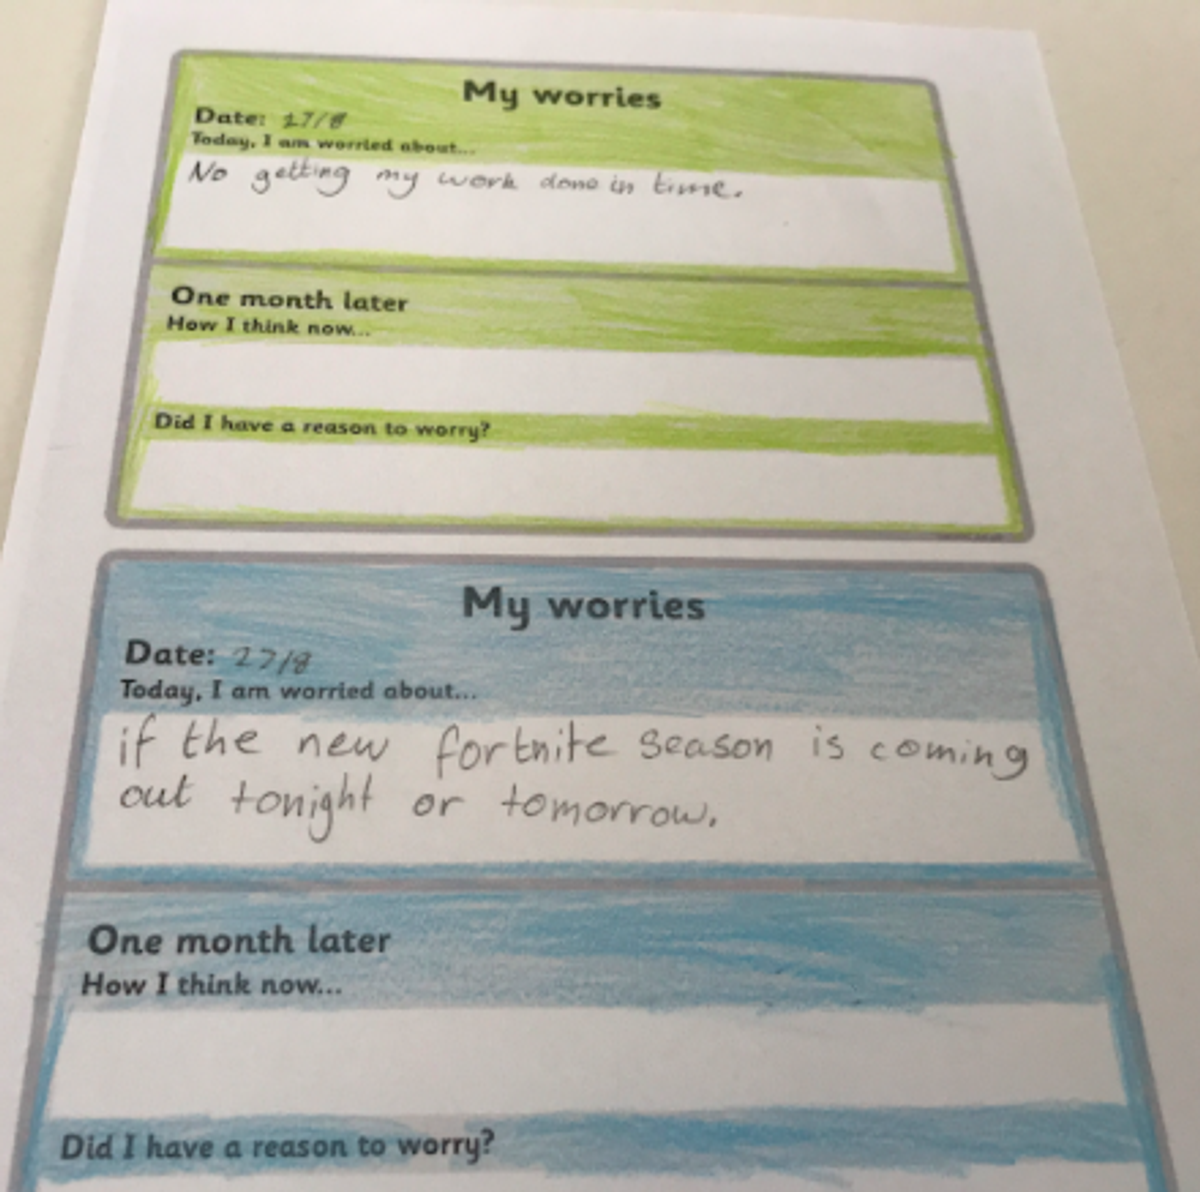 My worries
Date: 27/8
Today, I am worried about...
No getting my work done in time.
One month later
How I think now...
Did I have a reason to worry?
My worries
Date: 27/8
Today, I am worried about...
if the new fortnite season is coming
out tonight or tomorrow.
One month later
How I think now...
Did I have a reason to worry?